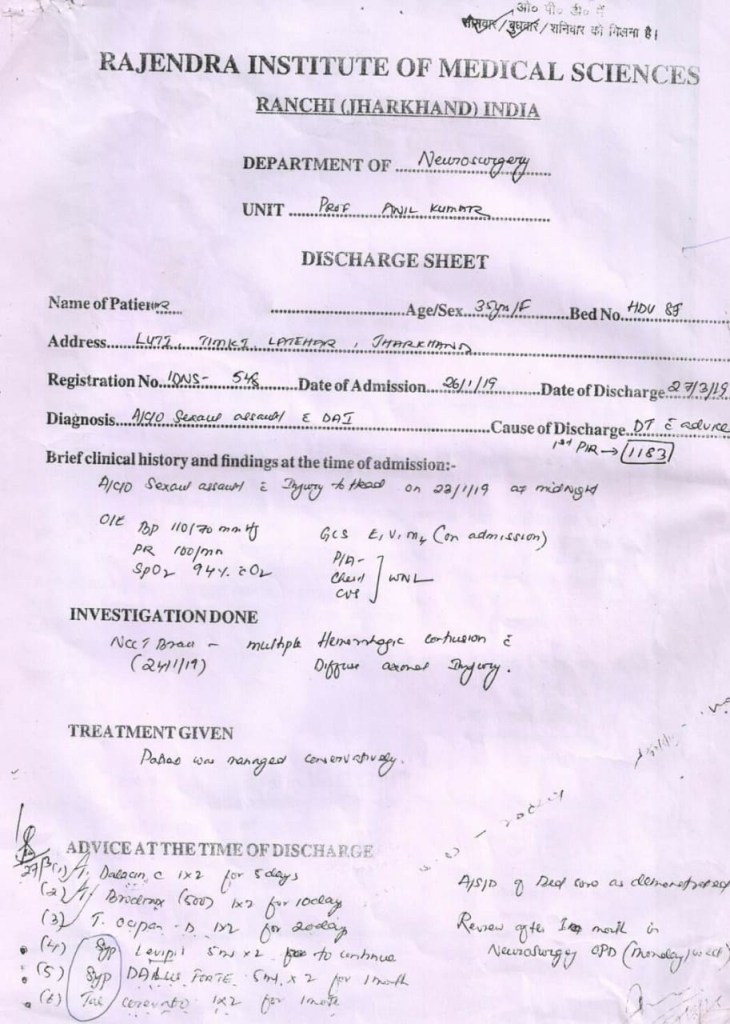 ओ० पी० डी० में
सोमवार/बुधवार/शनिवार को मिलना है।
RAJENDRA INSTITUTE OF MEDICAL SCIENCES
RANCHI (JHARKHAND) INDIA
DEPARTMENT OF Neurosurgery
UNIT Prof ANIL KUMAR
DISCHARGE SHEET
Name of Patient Age/Sex 35yrs/F Bed No. HDU
Address LATEHAR, JHARKHAND
Registration No. 548 Date of Admission 26/1/19 Date of Discharge 27/3/19
Diagnosis A/C/O Sexaul assault c DAI Cause of Discharge DT c advice
1st PIR → 1183
Brief clinical history and findings at the time of admission:-
A/C/O Sexaul assault c Injury to Head on 23/1/19 at midnight
O/E BP 110/70 mmHg GCS E1V1M4 (on admission)
PR 100/mn P/A-
SpO2 94% c O2 Chest WNL
CVS
INVESTIGATION DONE
NCCT Brain - multiple Hemorrhagic contusion c
(24/1/19) Diffuse axonal Injury.
TREATMENT GIVEN
was managed conservatively.
ADVICE AT THE TIME OF DISCHARGE
27/3
(1) T. 1x2 for 5 days
(2) T. (500) 1x2 for 10day
(3) T. 1x2 for 20day
(4) Syp Levipil 5ml x 2 to continue
(5) Syp FORTE 5ml x 2 for 1 month
(6) Tab 1x2 for 1 month
of Bed sore as demonstrated
Review after month in
Neurosurgery OPD (Monday/